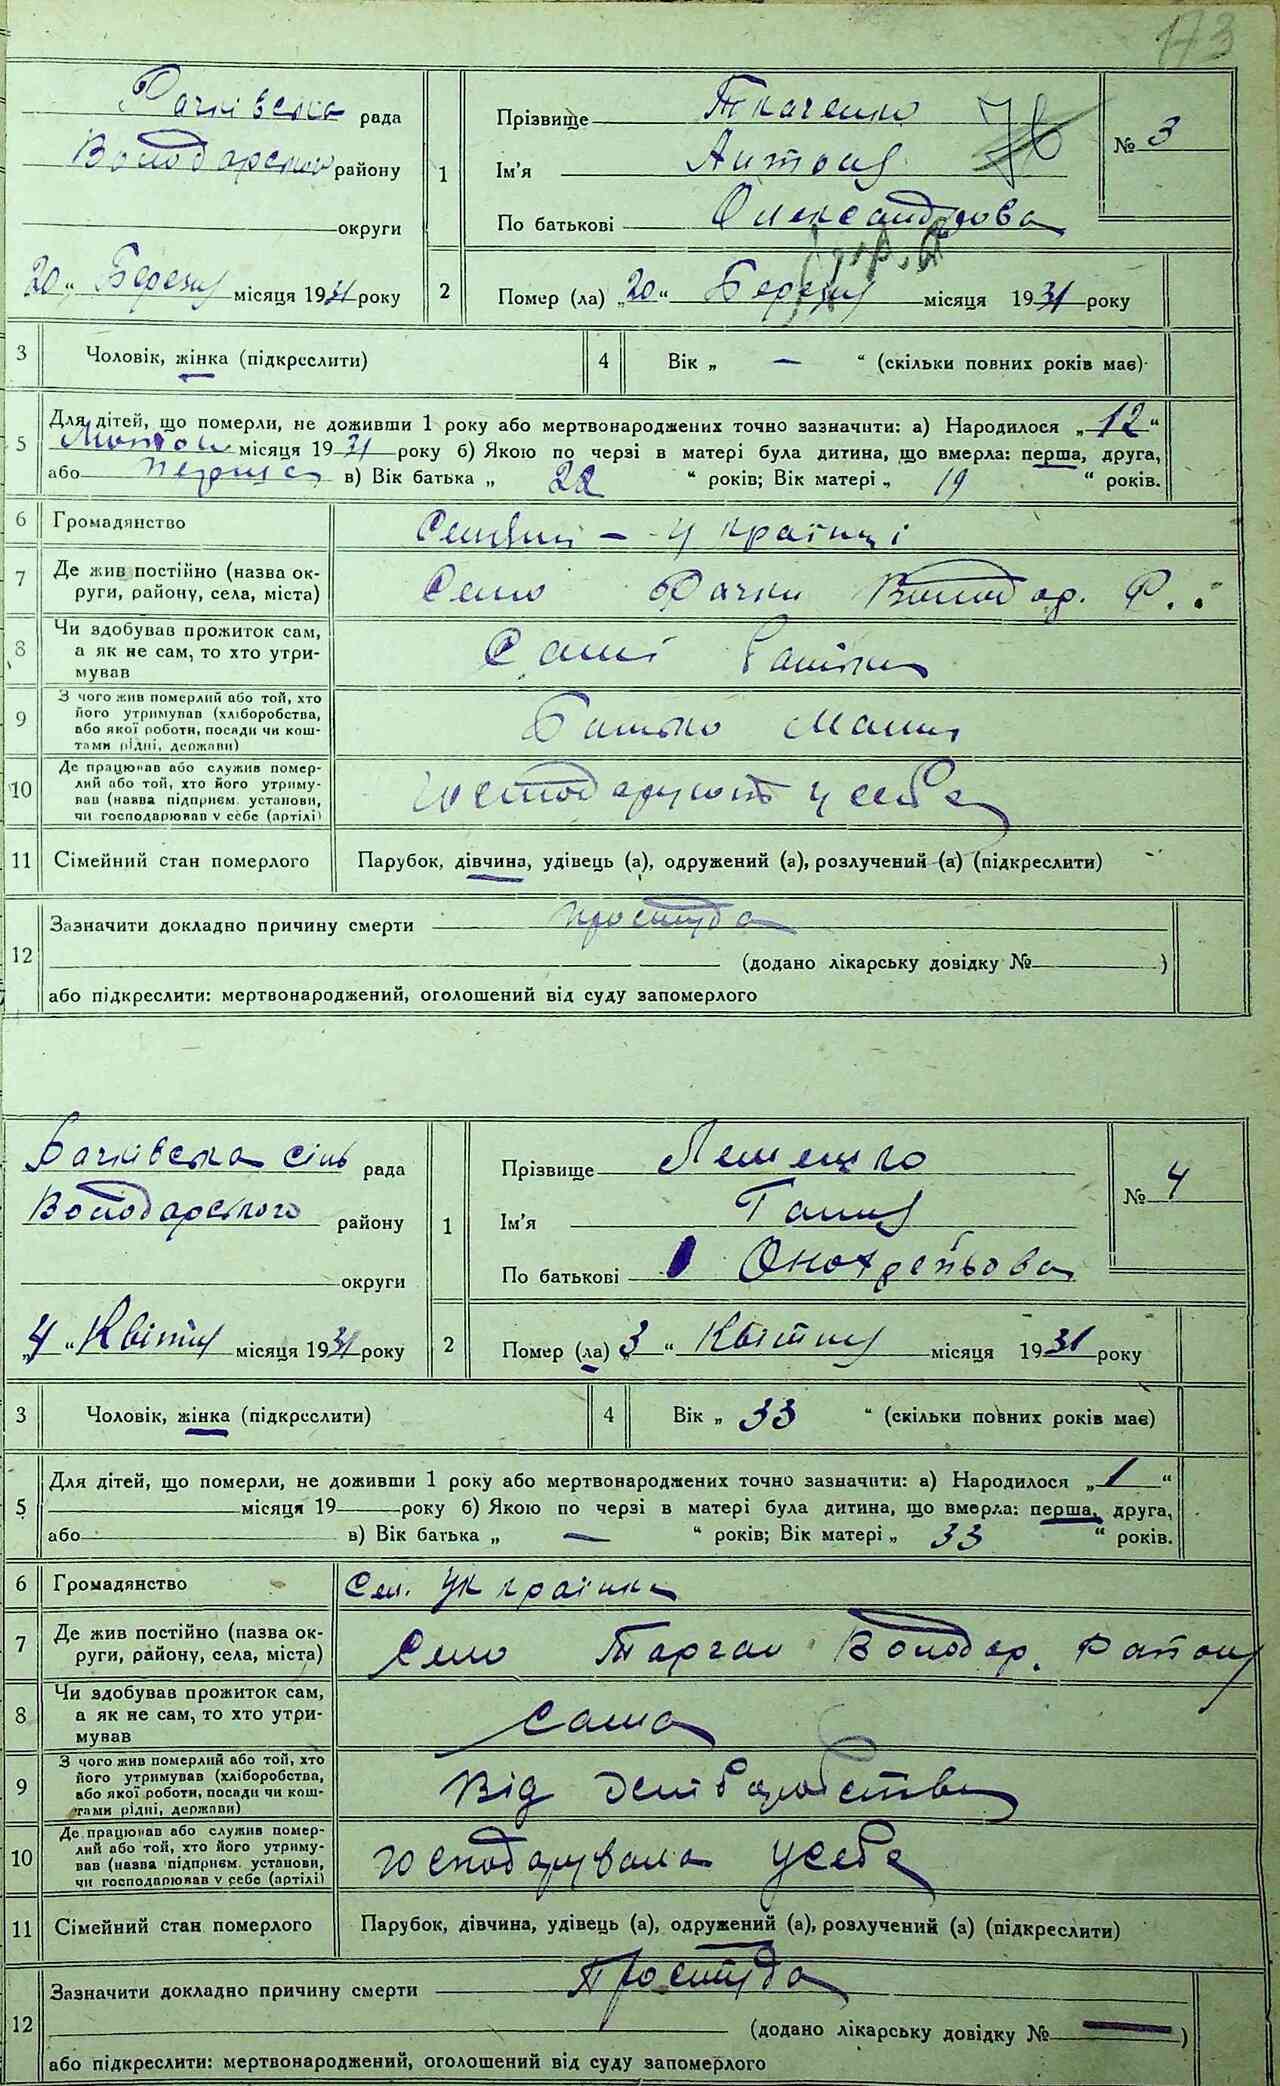 173
Рачківська рада
Володарського району
округи
20 „ Березня місяця 1931 року
1
Прізвище Ткаченко
Ім'я Антоня
По батькові Олександрова
76
№ 3
2
Помер (ла) „20“ Березня місяця 1931 року
3 Чоловік, жінка (підкреслити)
4 Вік „ — “ (скільки повних років має)
5 Для дітей, що померли, не доживши 1 року або мертвонароджених точно зазначити: а) Народилося „12“
місяця 1931 року б) Якою по черзі в матері була дитина, що вмерла: перша, друга,
або перша в) Вік батька „ 22 “ років; Вік матері „ 19 “ років.
6 Громадянство
Селяни – Українці
7 Де жив постійно (назва ок-
руги, району, села, міста)
Село Рачки Володар. Р.
8 Чи здобував прожиток сам,
а як не сам, то хто утри-
мував
Самі
9 З чого жив померлий або той, хто
його утримував (хліборобства,
або якої роботи, посади чи кош-
тами рідні, держави)
Батько Мати
10 Де працював або служив помер-
лий або той, хто його утриму-
вав (назва підприєм. установи,
чи господарював у себе (артілі)
господарюють у себе
11 Сімейний стан померлого Парубок, дівчина, удівець (а), одружений (а), розлучений (а) (підкреслити)
12 Зазначити докладно причину смерти простуда
(додано лікарську довідку № )
або підкреслити: мертвонароджений, оголошений від суду запомерлого
Бачківська сіль рада
Володарського району
округи
„4“ Квітня місяця 1931 року
1
Прізвище Лемешко
Ім'я Ганна
По батькові Онохрейьова
№ 4
2
Помер (ла) „3“ Квітня місяця 1931 року
3 Чоловік, жінка (підкреслити)
4 Вік „ 33 “ (скільки повних років має)
5 Для дітей, що померли, не доживши 1 року або мертвонароджених точно зазначити: а) Народилося „1“
місяця 19 року б) Якою по черзі в матері була дитина, що вмерла: перша, друга,
або в) Вік батька „ — “ років; Вік матері „ 33 “ років.
6 Громадянство
Сел. Українка
7 Де жив постійно (назва ок-
руги, району, села, міста)
Село Тарган Володар. Району
8 Чи здобував прожиток сам,
а як не сам, то хто утри-
мував
Сама
9 З чого жив померлий або той, хто
його утримував (хліборобства,
або якої роботи, посади чи кош-
тами рідні, держави)
Від
10 Де працював або служив помер-
лий або той, хто його утриму-
вав (назва підприєм. установи,
чи господарював у себе (артілі)
господарувала у себе
11 Сімейний стан померлого Парубок, дівчина, удівець (а), одружений (а), розлучений (а) (підкреслити)
12 Зазначити докладно причину смерти Простуда
(додано лікарську довідку № — )
або підкреслити: мертвонароджений, оголошений від суду запомерлого